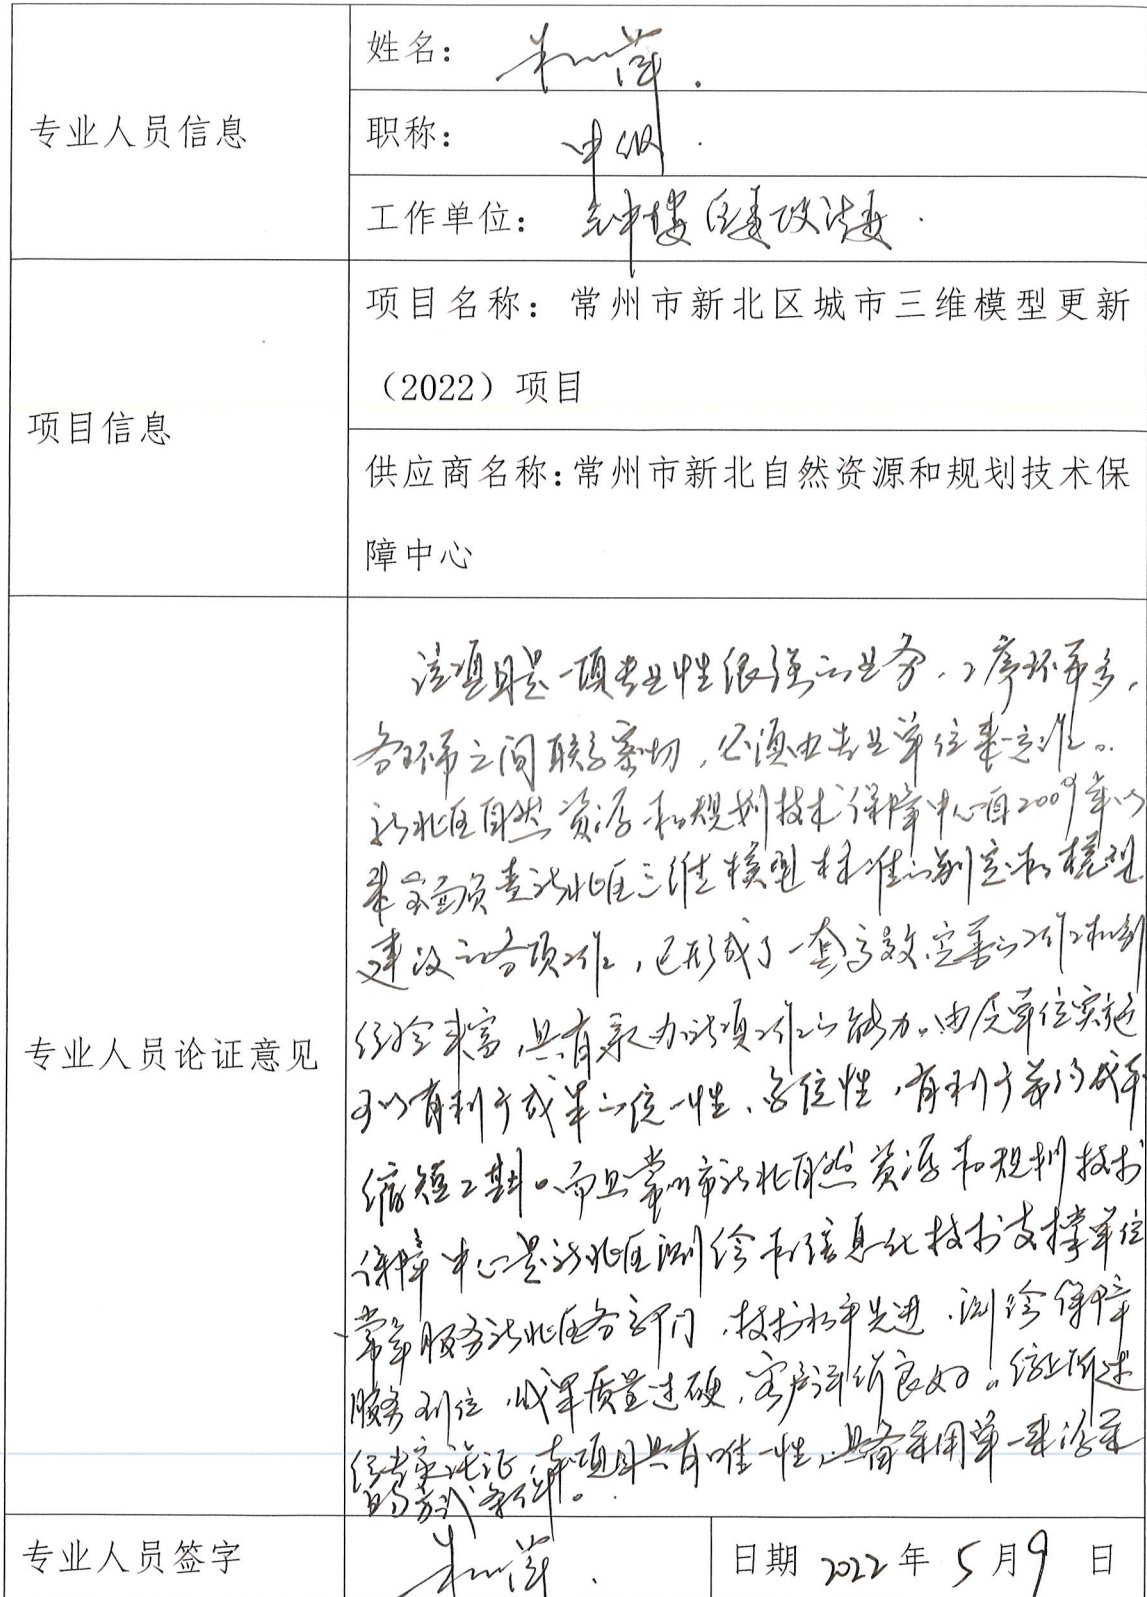 专业人员信息
姓名：
职称：中级
工作单位：钟楼区委政法委
项目信息
项目名称：常州市新北区城市三维模型更新
（2022）项目
供应商名称：常州市新北自然资源和规划技术保
障中心
专业人员论证意见
该项目是一项专业性很强的业务，工序环节多，
各环节之间联系密切，必须由专业单位来完成。
新北区自然资源和规划技术保障中心自2009年以
来全面负责新北区三维模型标准的制定和模型
建设的各项工作，已形成了一套高效、完善的工作机制
经验丰富，具有承办该项工作的能力。由该单位实施
可以有利于成果的统一性、有利于节约成本
缩短工期。而且常州市新北自然资源和规划技术
保障中心是新北区测绘和信息化技术支撑单位
常年服务新北区各部门，技术水平先进，测绘保障
服务到位，成果质量过硬，客户评价良好。综上所述
经专家论证，本项目具有唯一性，具备采用单一来源采
的方式条件。
专业人员签字
日期 2022年5月9日